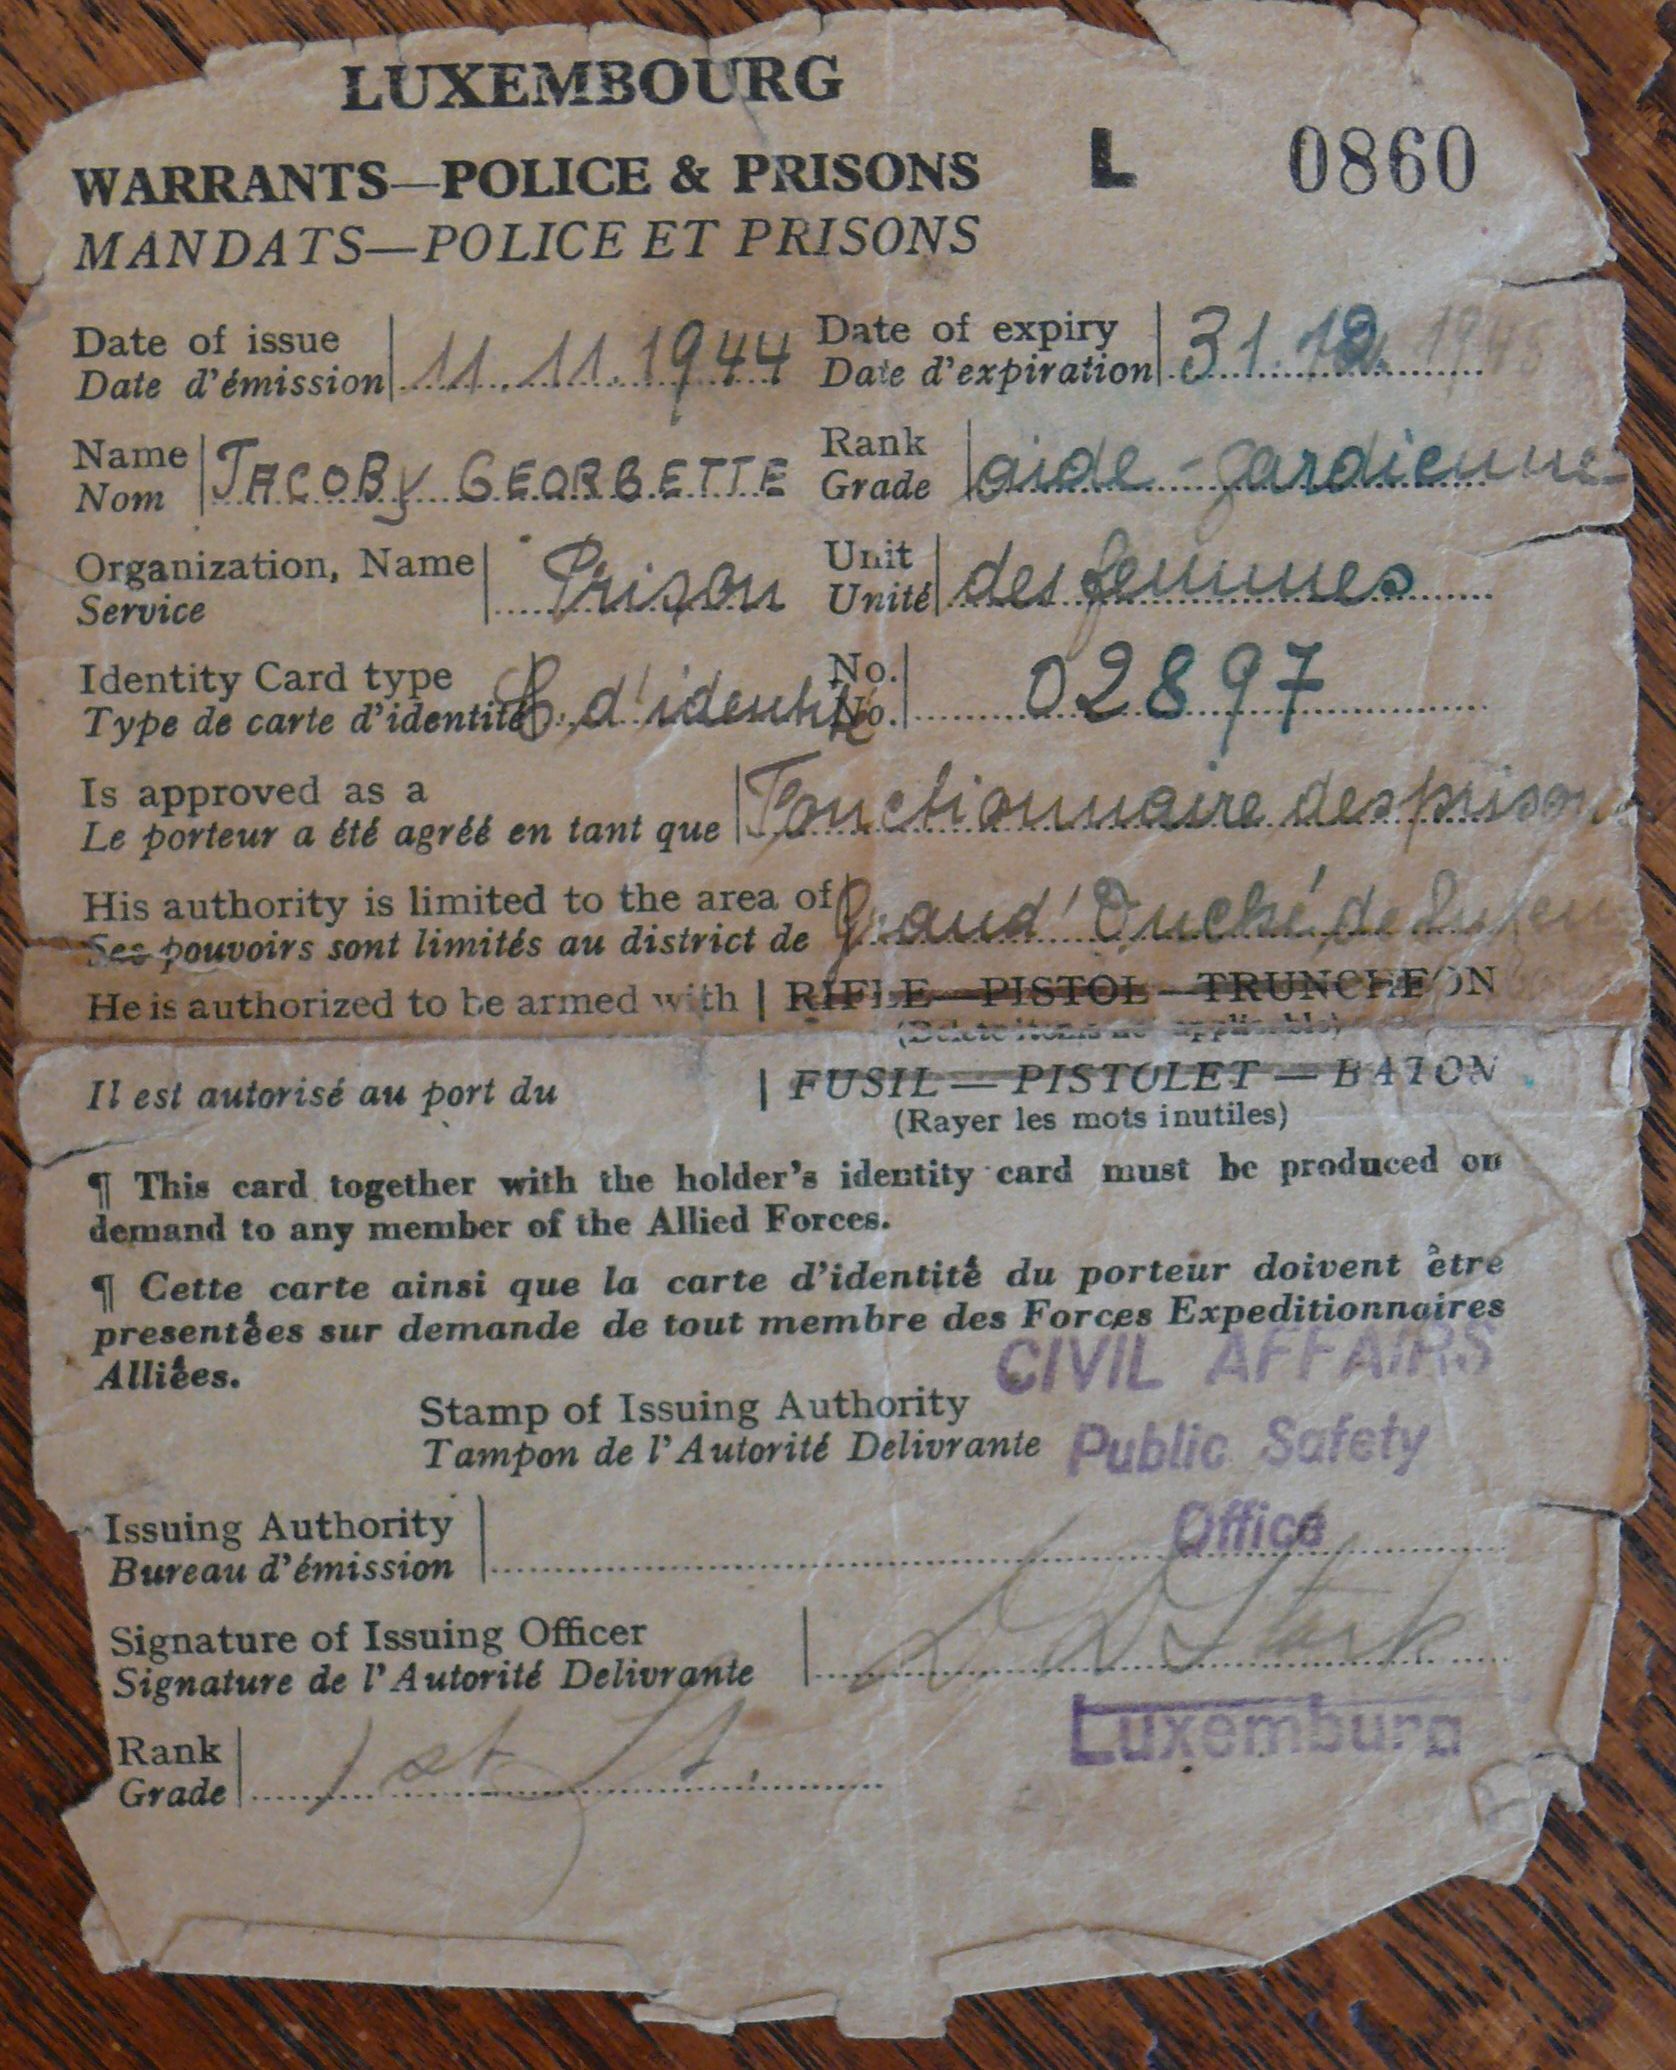 LUXEMBOURG
WARRANTS—POLICE & PRISONS L 0860
MANDATS—POLICE ET PRISONS
Date of issue 11.11.1944 Date of expiry 31.12.1945
Date d'émission Date d'expiration
Name JACOBY GEORGETTE Rank aide-gardienne
Nom Grade
Organization, Name Prison Unit des femmes
Service Unité
Identity Card type C. d'identité No. 02897
Type de carte d'identité No.
Is approved as a Fonctionnaire des prisons
Le porteur a été agréé en tant que
His authority is limited to the area of Grand' Duché de Luxem
Ses pouvoirs sont limités au district de
He is authorized to be armed with RIFLE—PISTOL—TRUNCHEON
(Delete items not applicable)
Il est autorisé au port du FUSIL—PISTOLET—BATON
(Rayer les mots inutiles)
¶ This card together with the holder's identity card must be produced on
demand to any member of the Allied Forces.
¶ Cette carte ainsi que la carte d'identité du porteur doivent être
presentées sur demande de tout membre des Forces Expeditionnaires
Alliées.
CIVIL AFFAIRS
Stamp of Issuing Authority
Tampon de l'Autorité Delivrante Public Safety
Office
Issuing Authority
Bureau d'émission
Signature of Issuing Officer Stark
Signature de l'Autorité Delivrante
Luxemburg
Rank 1st Lt.
Grade